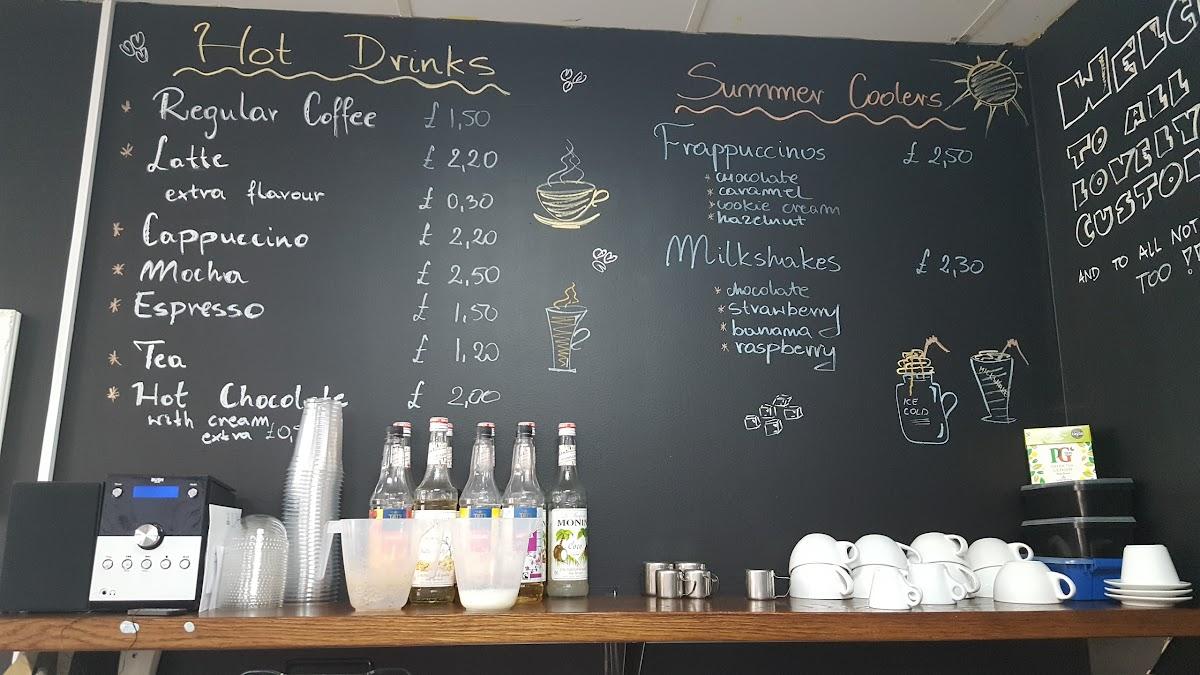 Hot Drinks
* Regular Coffee £ 1,50
* Latte £ 2,20
extra flavour £ 0,30
* Cappuccino £ 2,20
* Mocha £ 2,50
* Espresso £ 1,50
* Tea £ 1,20
* Hot Chocolate £ 2,00
with cream
extra
Summer Coolers
Frappuccinos £ 2,50
* chocolate
* caramel
* cookie cream
* hazelnut
Milkshakes £ 2,30
* chocolate
* strawberry
* banana
* raspberry
ICE
COLD
TO ALL
LOVELY
AND TO ALL NOT
TOO !!
PG
MONIN
BUSH